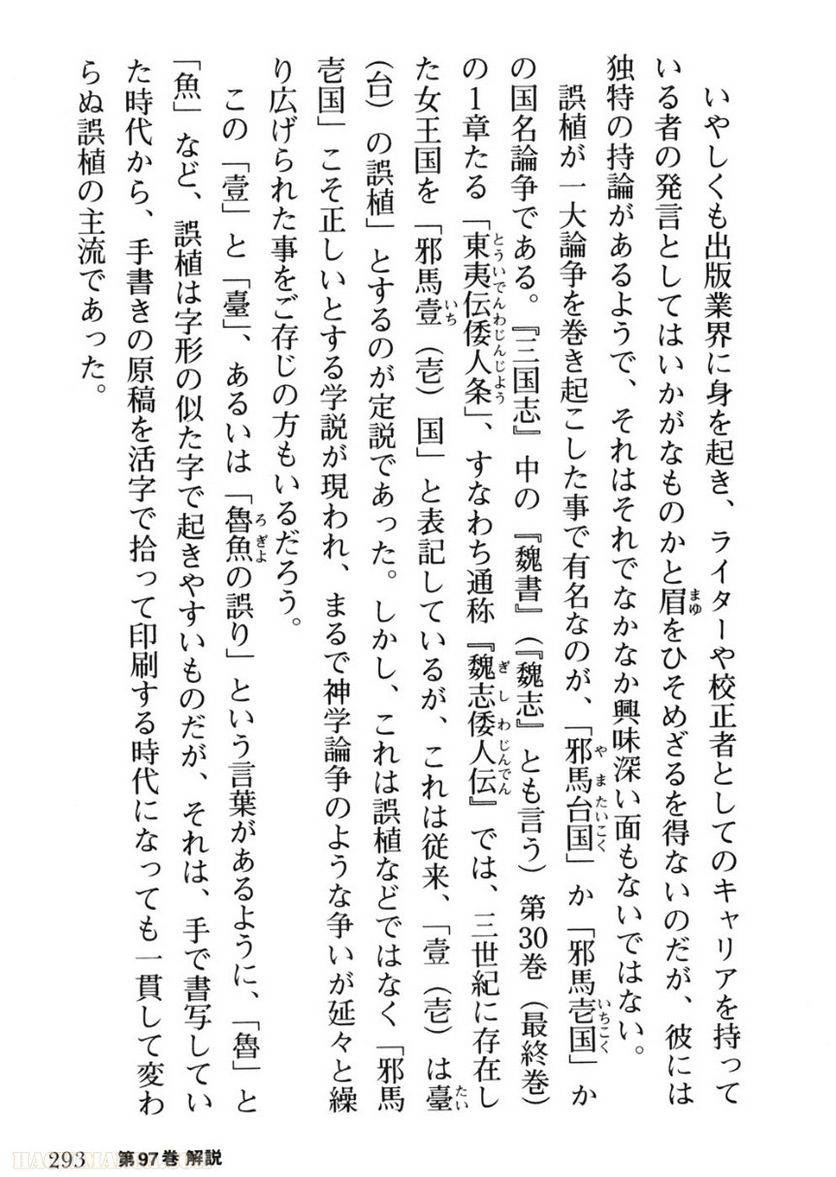 いやしくも出版業界に身を起き、ライターや校正者としてのキャリアを持って
いる者の発言としてはいかがなものかと眉をひそめざるを得ないのだが、彼には
独特の持論があるようで、それはそれでなかなか興味深い面もないではない。
誤植が一大論争を巻き起こした事で有名なのが、「邪馬台国」か「邪馬壱国」か
の国名論争である。『三国志』中の『魏書』（『魏志』とも言う）第30巻（最終巻）
の1章たる「東夷伝倭人条」、すなわち通称『魏志倭人伝』では、三世紀に存在し
た女王国を「邪馬壹（壱）国」と表記しているが、これは従来、「壹（壱）は臺
（台）の誤植」とするのが定説であった。しかし、これは誤植などではなく「邪馬
壱国」こそ正しいとする学説が現われ、まるで神学論争のような争いが延々と繰
り広げられた事をご存じの方もいるだろう。
この「壹」と「臺」、あるいは「魯魚の誤り」という言葉があるように、「魯」と
「魚」など、誤植は字形の似た字で起きやすいものだが、それは、手で書写してい
た時代から、手書きの原稿を活字で拾って印刷する時代になっても一貫して変わ
らぬ誤植の主流であった。
293 第97巻 解説